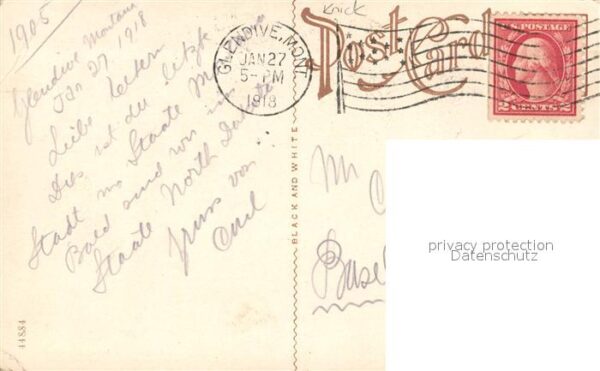 1905
Glendive Montana
Jan 27, 1918
Liebe Eltern
Dies ist die letzte
Stadt im Staate M
Bald sind wir im
Staate North Dakota
Gruss von
Emil
44884
BLACK AND WHITE
Knick
Post Card
GLENDIVE, MONT.
JAN 27
5-PM
1918
U.S. POSTAGE
2 CENTS 2
Mr
Basel
privacy protection
Datenschutz